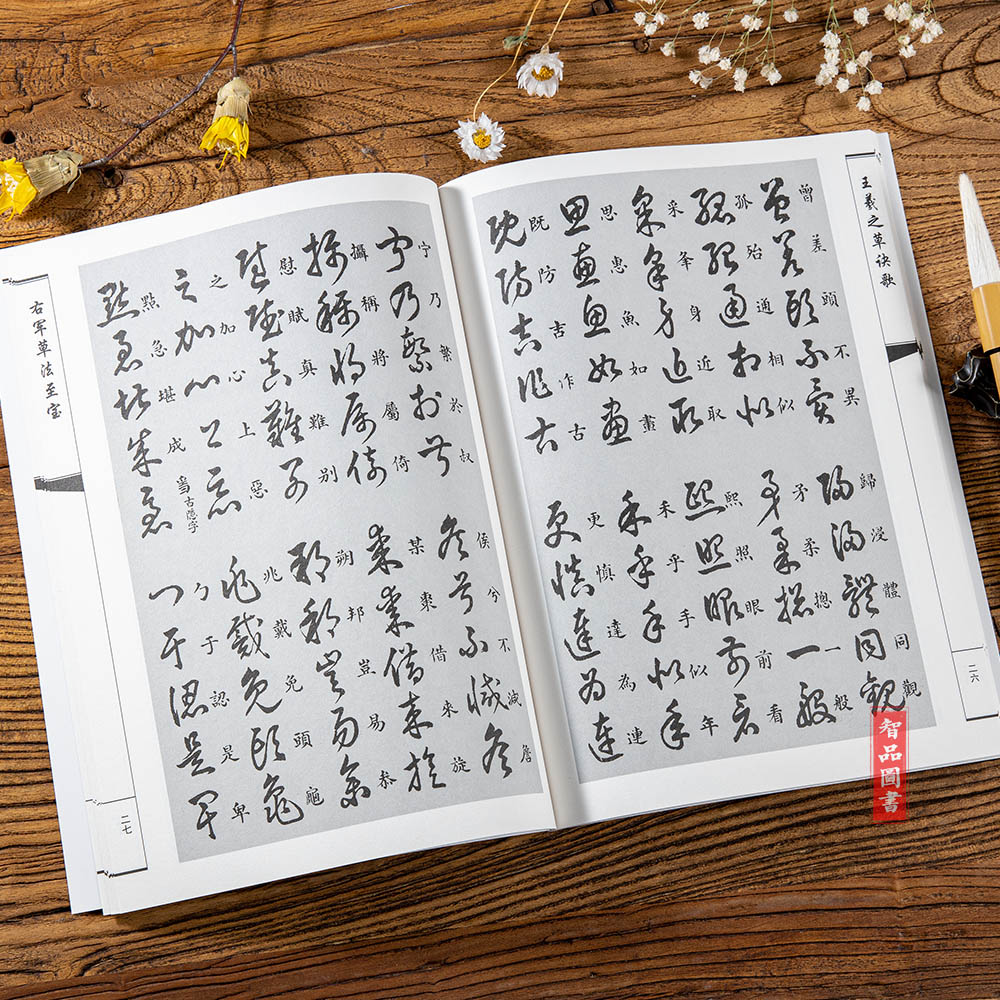 王羲之草诀歌
曾差頭不異
歸浸體同觀
孤殆通相似
矛柔總一般
采夆身近取
熙照眼前看
思惠魚如畫
未乎手似年
既防吉作古
更慎達為連
二六
宁乃繁於叔
侯兮不減詹
攝稱將屬倚
某棗借來旋
慰賦真雖別
朔邦豈易恭
之加心上惡
兆戴免頭龜
點急堪成
古隐字
于認是卑
右军草法至宝
二七
智品圖書